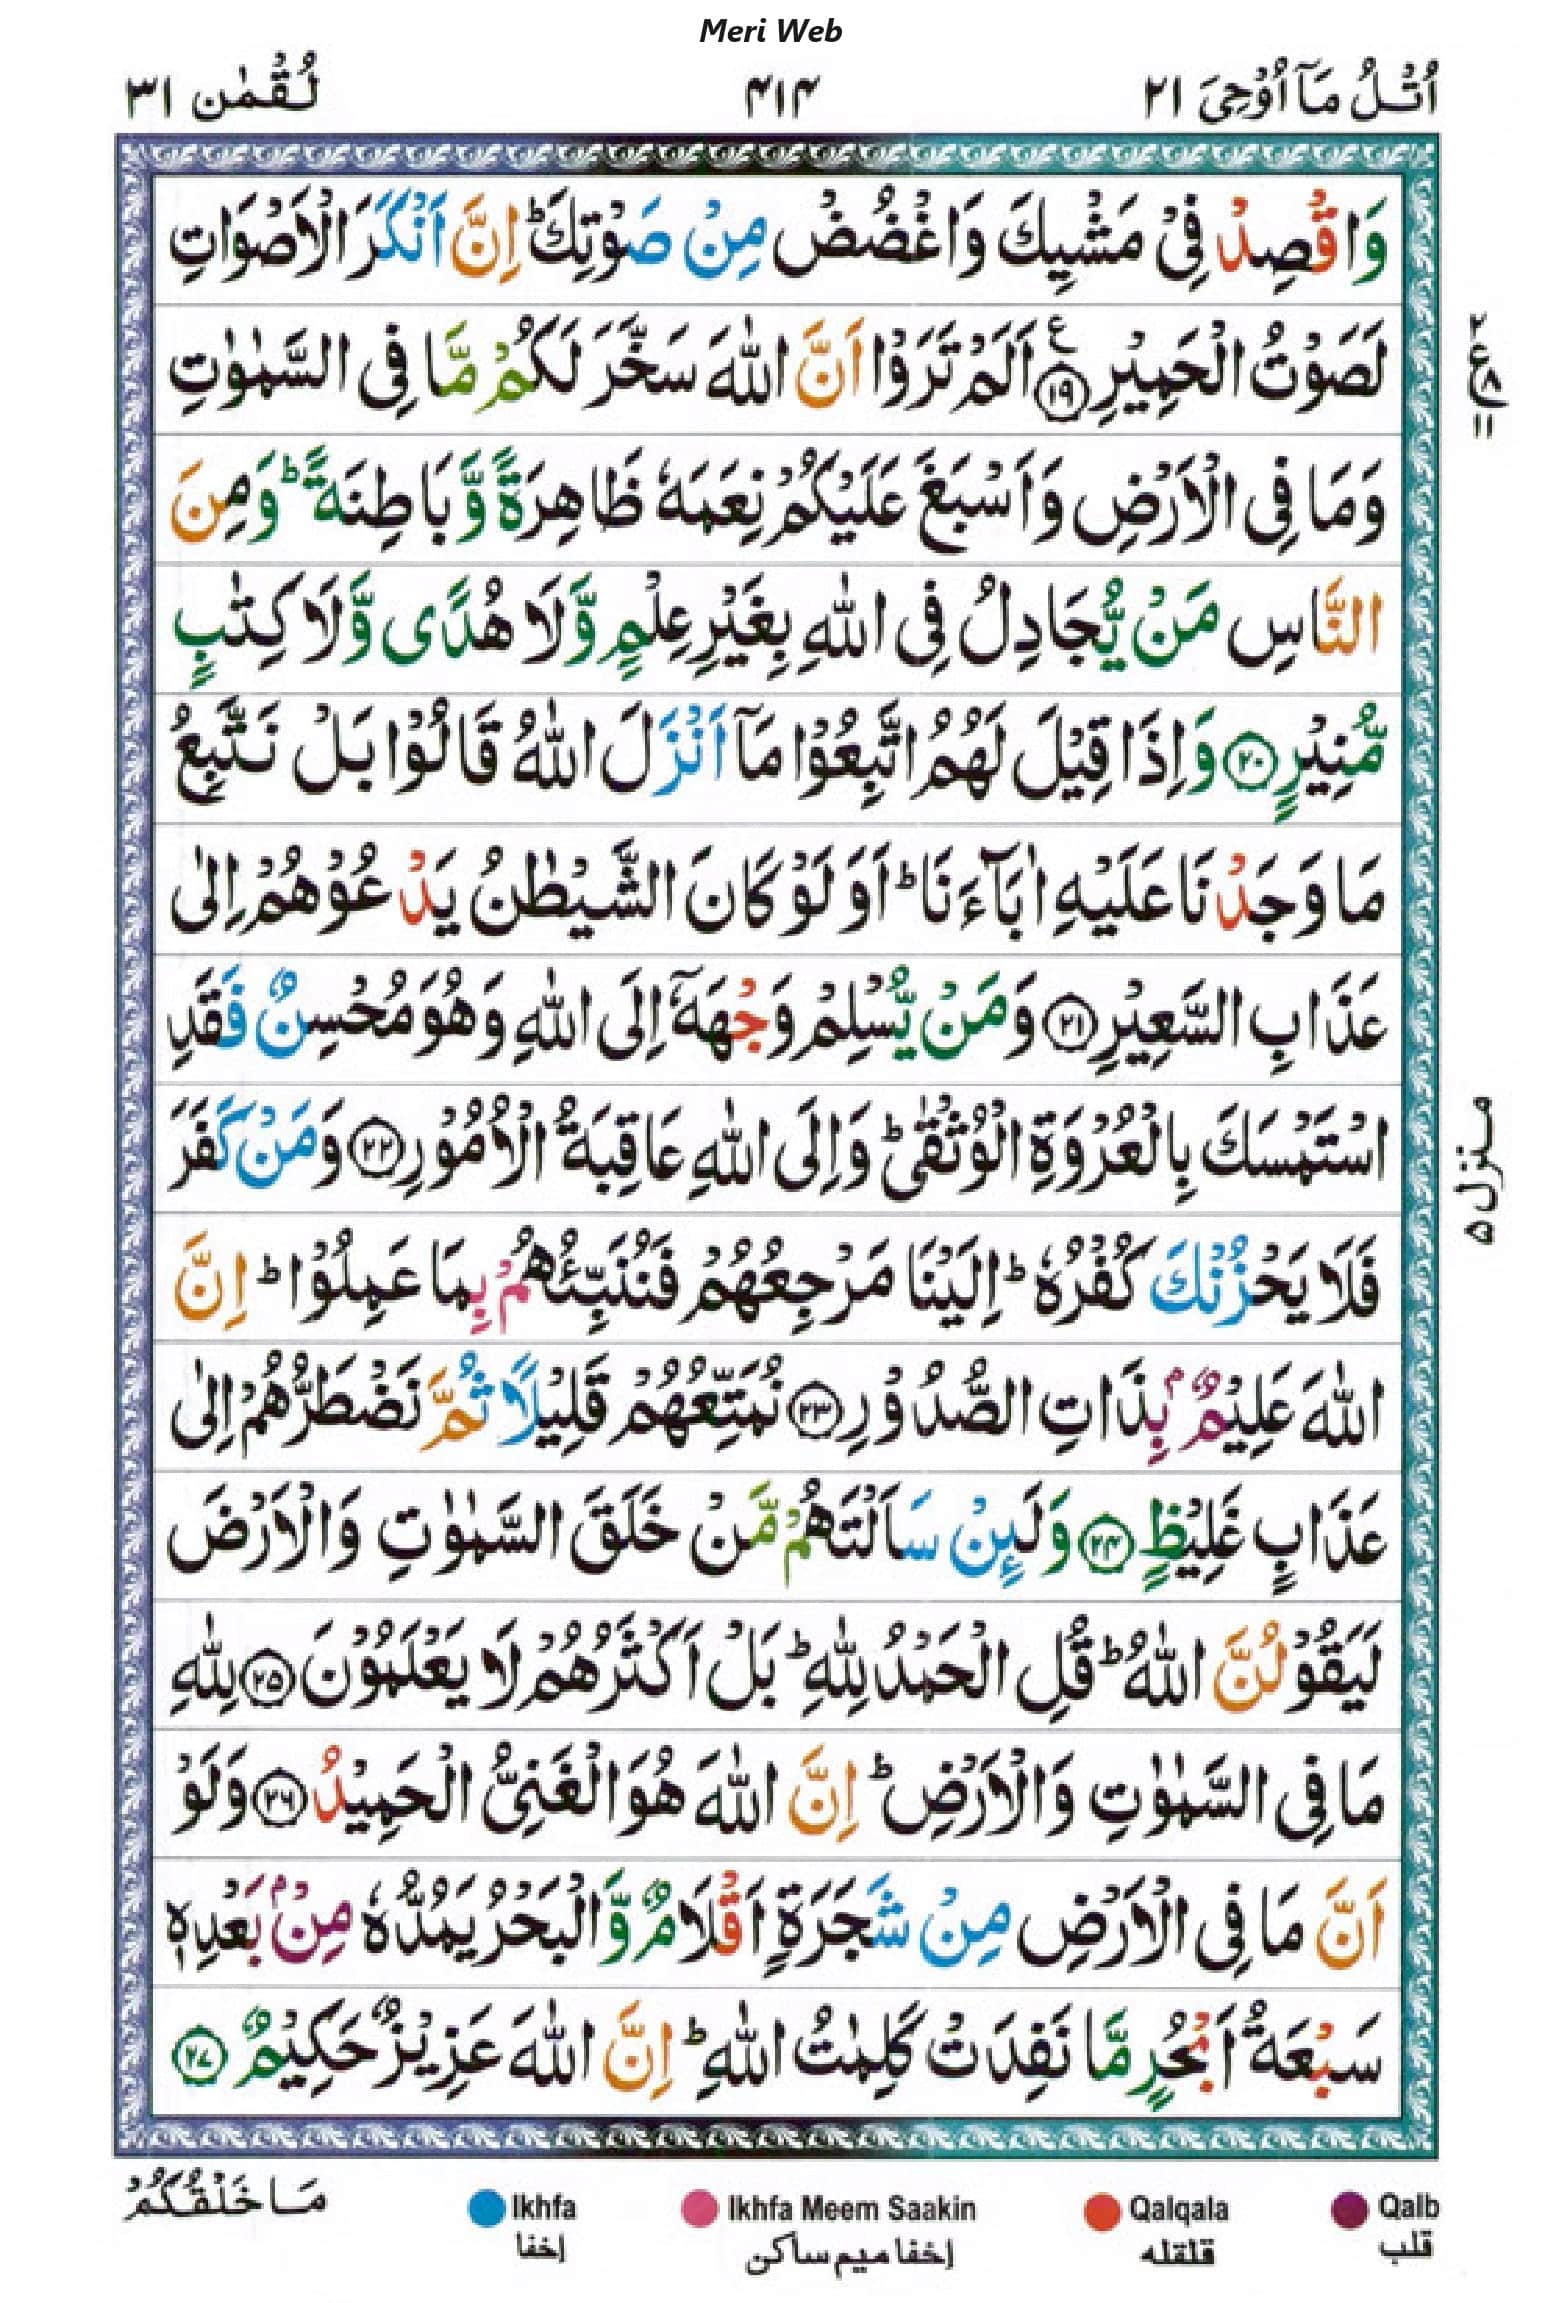 Meri Web
اُتْلُ مَآ اُوْحِیَ ٢١
٤١٤
لُقْمٰن ٣١
وَاقْصِدْ فِیْ مَشْیِكَ وَاغْضُضْ مِنْ صَوْتِكَ ؕ اِنَّ اَنْكَرَ الْاَصْوَاتِ
لَصَوْتُ الْحَمِیْرِ ۧ ﴿١٩﴾ اَلَمْ تَرَوْا اَنَّ اللّٰهَ سَخَّرَ لَكُمْ مَّا فِی السَّمٰوٰتِ
وَمَا فِی الْاَرْضِ وَاَسْبَغَ عَلَیْكُمْ نِعَمَهٗ ظَاهِرَةً وَّبَاطِنَةً ؕ وَمِنَ
النَّاسِ مَنْ یُّجَادِلُ فِی اللّٰهِ بِغَیْرِ عِلْمٍ وَّلَا هُدًی وَّلَا كِتٰبٍ
مُّنِیْرٍ ﴿٢٠﴾ وَاِذَا قِیْلَ لَهُمُ اتَّبِعُوْا مَآ اَنْزَلَ اللّٰهُ قَالُوْا بَلْ نَتَّبِعُ
مَا وَجَدْنَا عَلَیْهِ اٰبَآءَنَا ؕ اَوَلَوْ كَانَ الشَّیْطٰنُ یَدْعُوْهُمْ اِلٰی
عَذَابِ السَّعِیْرِ ﴿٢١﴾ وَمَنْ یُّسْلِمْ وَجْهَهٗۤ اِلَی اللّٰهِ وَهُوَ مُحْسِنٌ فَقَدِ
اسْتَمْسَكَ بِالْعُرْوَةِ الْوُثْقٰی ؕ وَاِلَی اللّٰهِ عَاقِبَةُ الْاُمُوْرِ ﴿٢٢﴾ وَمَنْ كَفَرَ
فَلَا یَحْزُنْكَ كُفْرُهٗ ؕ اِلَیْنَا مَرْجِعُهُمْ فَنُنَبِّئُهُمْ بِمَا عَمِلُوْا ؕ اِنَّ
اللّٰهَ عَلِیْمٌۢ بِذَاتِ الصُّدُوْرِ ﴿٢٣﴾ نُمَتِّعُهُمْ قَلِیْلًا ثُمَّ نَضْطَرُّهُمْ اِلٰی
عَذَابٍ غَلِیْظٍ ﴿٢٤﴾ وَلَىِٕنْ سَاَلْتَهُمْ مَّنْ خَلَقَ السَّمٰوٰتِ وَالْاَرْضَ
لَیَقُوْلُنَّ اللّٰهُ ؕ قُلِ الْحَمْدُ لِلّٰهِ ؕ بَلْ اَكْثَرُهُمْ لَا یَعْلَمُوْنَ ﴿٢٥﴾ لِلّٰهِ
مَا فِی السَّمٰوٰتِ وَالْاَرْضِ ؕ اِنَّ اللّٰهَ هُوَ الْغَنِیُّ الْحَمِیْدُ ﴿٢٦﴾ وَلَوْ
اَنَّ مَا فِی الْاَرْضِ مِنْ شَجَرَةٍ اَقْلَامٌ وَّالْبَحْرُ یَمُدُّهٗ مِنْۢ بَعْدِهٖ
سَبْعَةُ اَبْحُرٍ مَّا نَفِدَتْ كَلِمٰتُ اللّٰهِ ؕ اِنَّ اللّٰهَ عَزِیْزٌ حَكِیْمٌ ﴿٢٧﴾
٢
ع
٨
١١
منزل ٥
مَا خَلْقُكُمْ
Ikhfa
إخفا
Ikhfa Meem Saakin
إخفا ميم ساكن
Qalqala
قلقله
Qalb
قلب